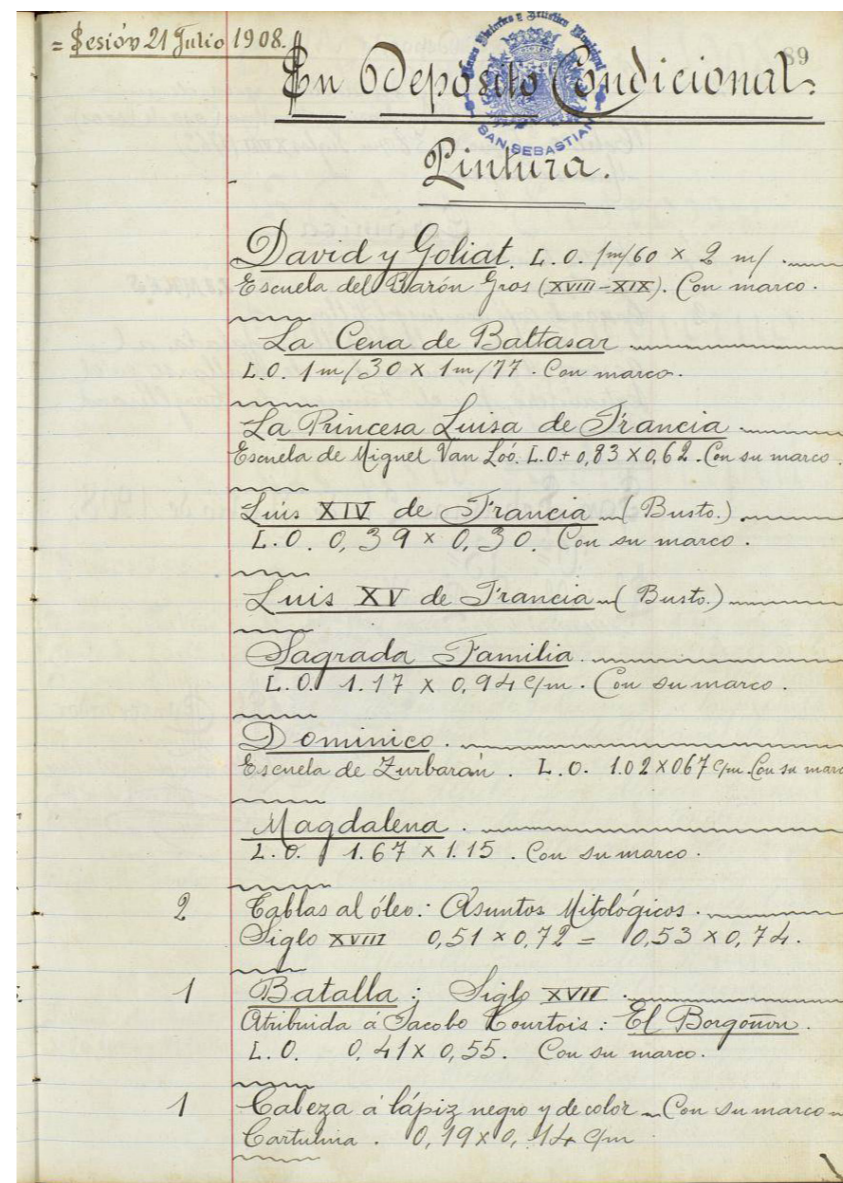 = Sesión 21 Julio 1908.
89
En Depósito Condicional.
SAN SEBASTIAN
Pintura.
David y Goliat. L.O. 1m/60 × 2 m/.
Escuela del Barón Gros (XVIII-XIX). Con marco.
La Cena de Baltasar
L.O. 1m/30 × 1m/77. Con marco.
La Princesa Luisa de Francia
Escuela de Miguel Van Loó. L.O. 0,83 × 0,62. Con su marco.
Luis XIV de Francia (Busto.)
L.O. 0,39 × 0,30. Con su marco.
Luis XV de Francia (Busto.)
Sagrada Familia.
L.O. 1.17 × 0,94 c/m. Con su marco.
Dominico.
Escuela de Zurbarán. L.O. 1.02 × 067 c/m. Con su marc
Magdalena.
L.O. 1.67 × 1.15. Con su marco.
2 Tablas al óleo: Asuntos Mitológicos.
Siglo XVIII 0,51 × 0,72 = 0,53 × 0,74.
1 Batalla; Siglo XVII.
Atribuida á Jacobo Courtois: El Borgoñon.
L.O. 0,41 × 0,55. Con su marco.
1 Cabeza á lápiz negro y de color Con su marco
Cartulina. 0,19 × 0,14 c/m